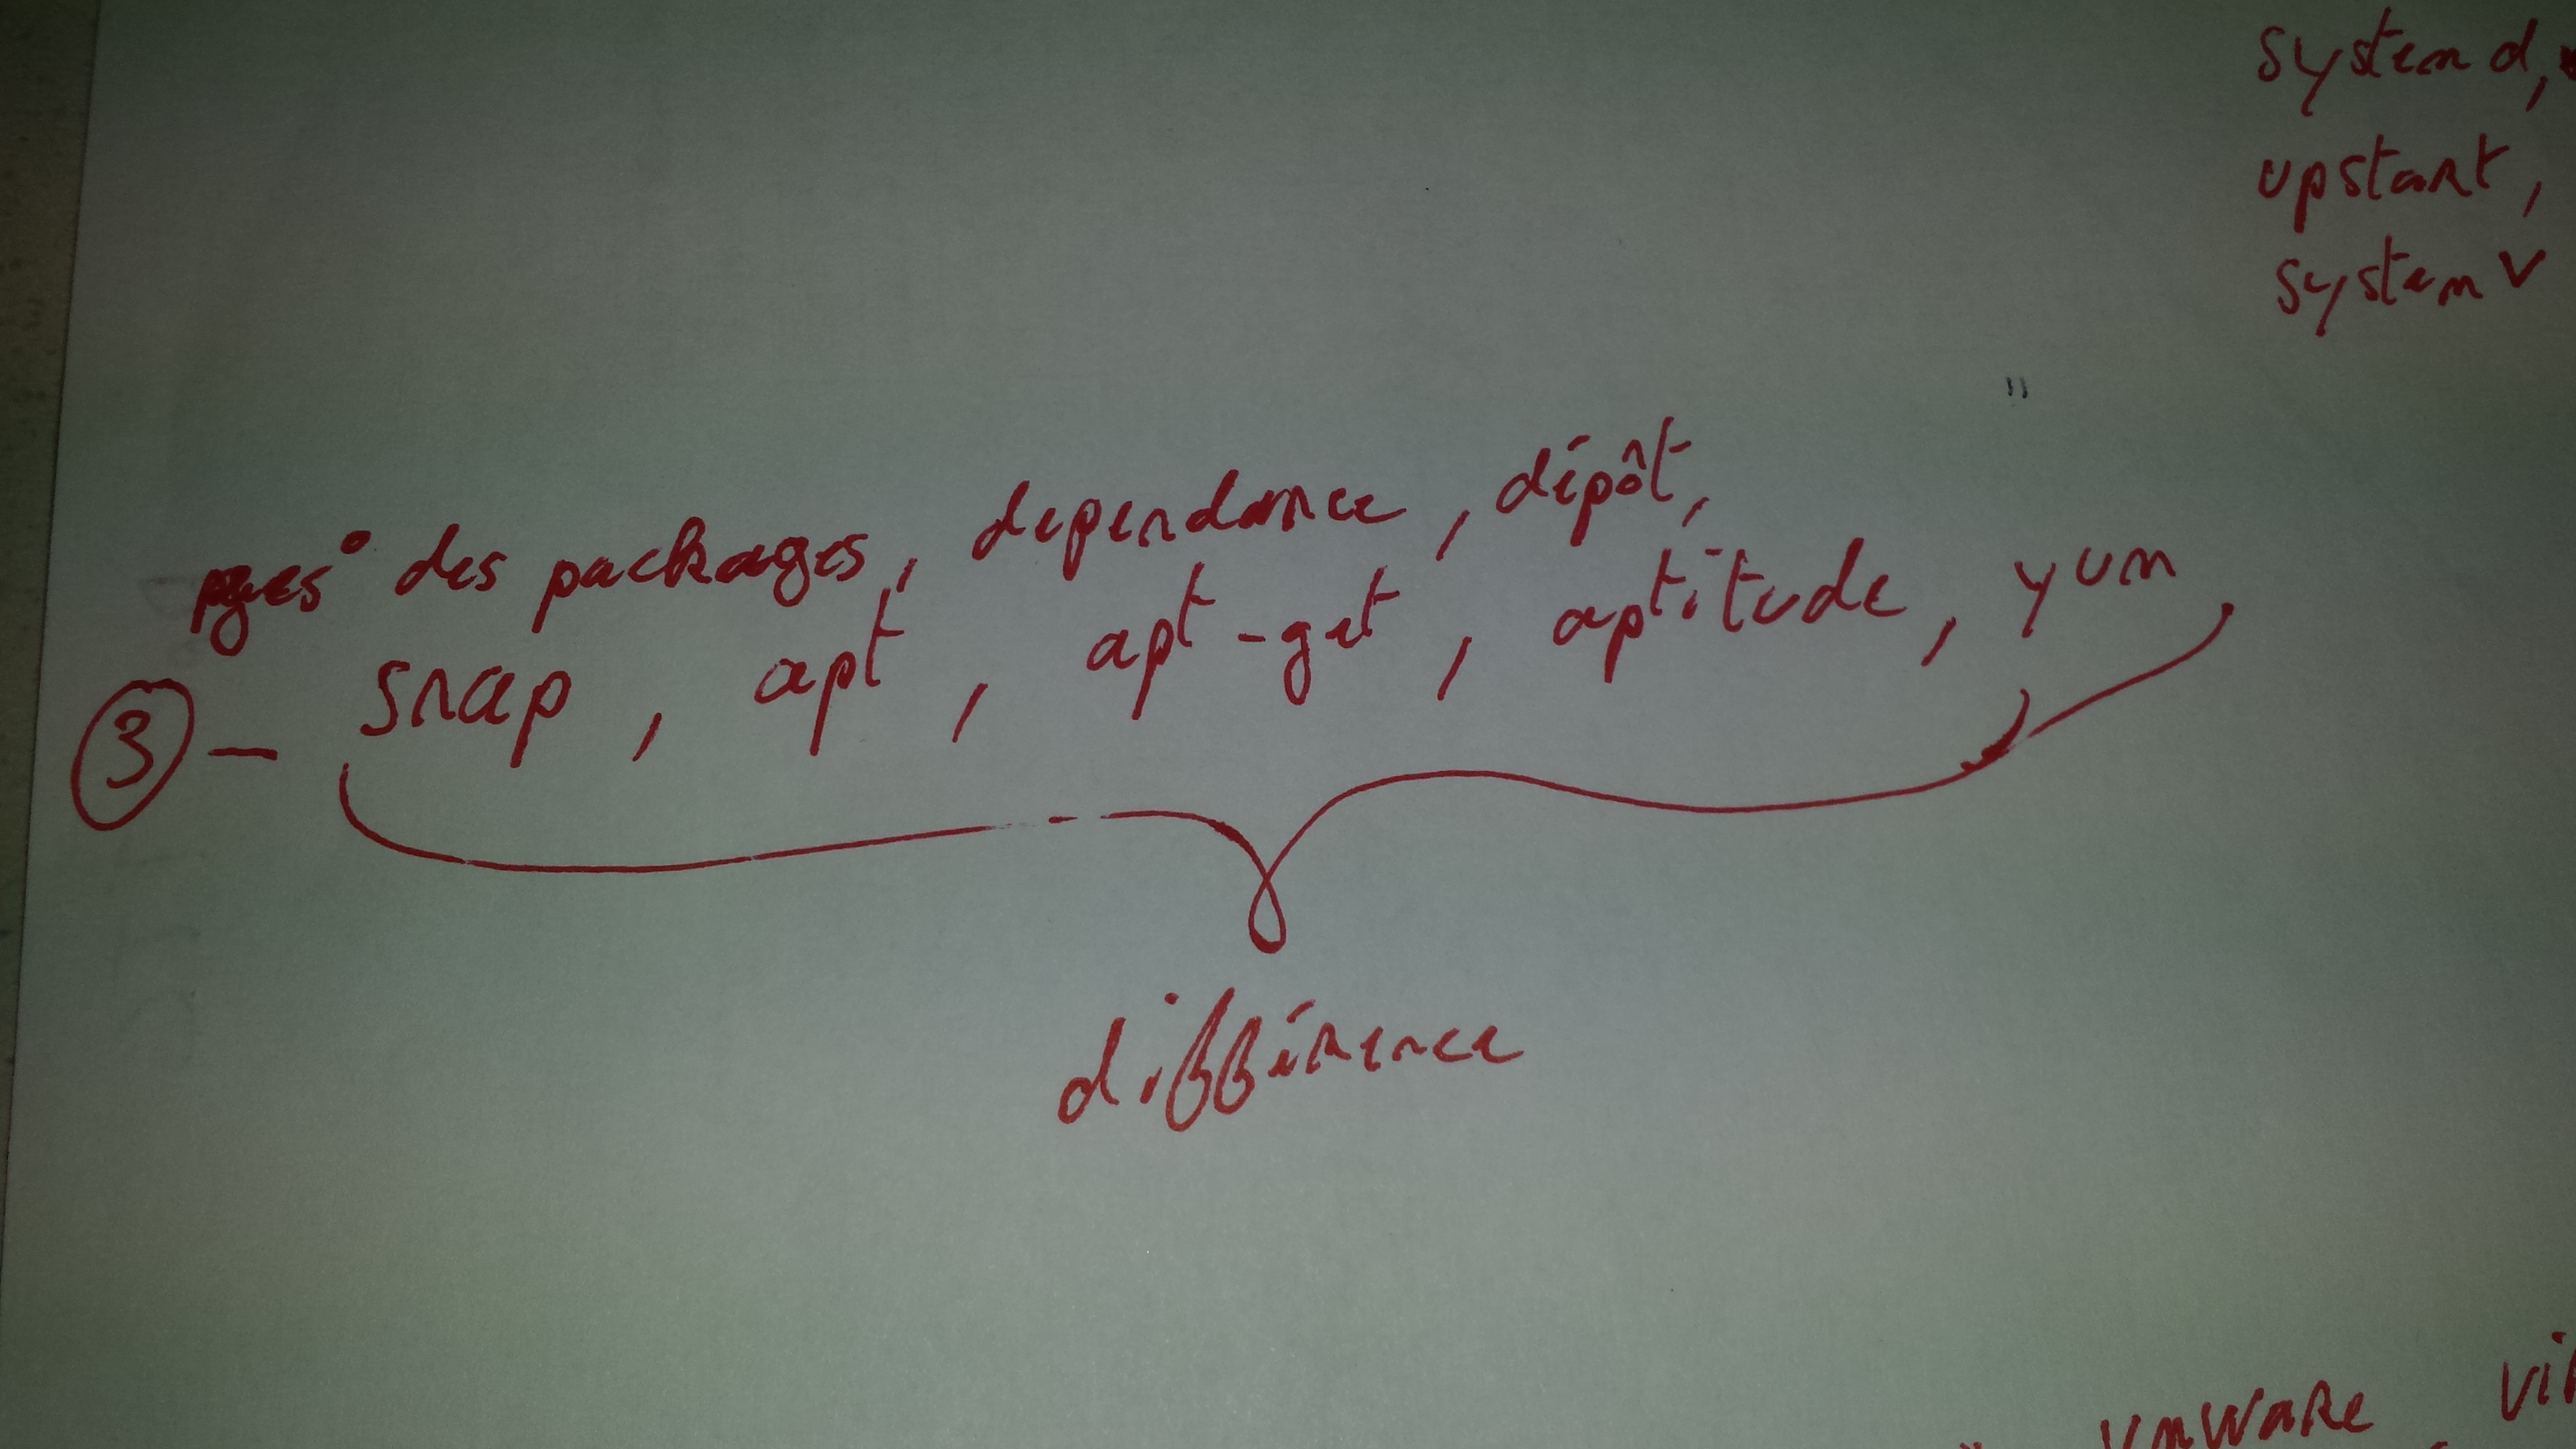 system d,
upstart,
system V
des packages, dependance, dépôt,
③ - snap, apt, apt-get, aptitude, yum
différence
vmware